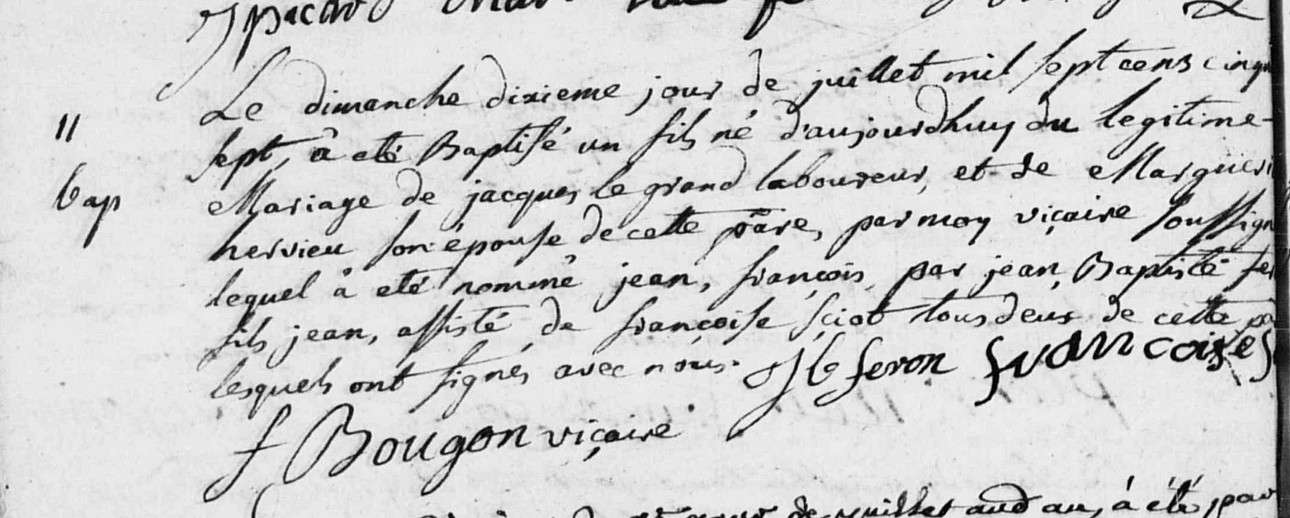 Le dimanche dixieme jour de juillet mil sept cens cinqu
sept, à eté Baptisé un fils né d'aujourdhuy du legitime
11
Mariage de jacques le grand laboureur, et de Margueri
bap
hervieu son épouse de cette pãre, par moy viçaire soussign
lequel à eté nommé jean, françois, par jean, Baptiste fer
fils jean, assisté de françoise sçiot tous deux de cette pa
lesquels ont signés avec nous. J b feron francoise s
f Bougon viçaire
de juillet aud an, à été par